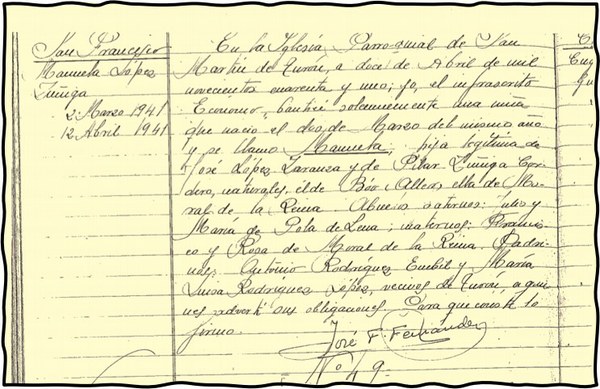 San Francisco
Manuela López
Zúñiga
2 Marzo 1941
12 Abril 1941
En la Iglesia Parroquial de San
Martín de Turón, a doce de Abril de mil
novecientos cuarenta y uno; yo, el infrascrito
Ecónomo, bauticé solemnemente una niña
que nació el dos de Marzo del mismo año
y se llamó Manuela; hija legítima de
José López Zaranza y de Pilar Zúñiga Cor-
dero, naturales, él de Bóo (Aller), ella de Mo-
ral de la Reina. Abuelos paternos: Julio y
María de Pola de Lena; maternos: Francis-
co y Rosa de Moral de la Reina. Padri-
nos: Antonio Rodríguez y María
Luisa Rodríguez López, vecinos de Turón, a quie-
nes advertí sus obligaciones. Para que conste lo
firmo.
José F. Fernández
Nº 49.